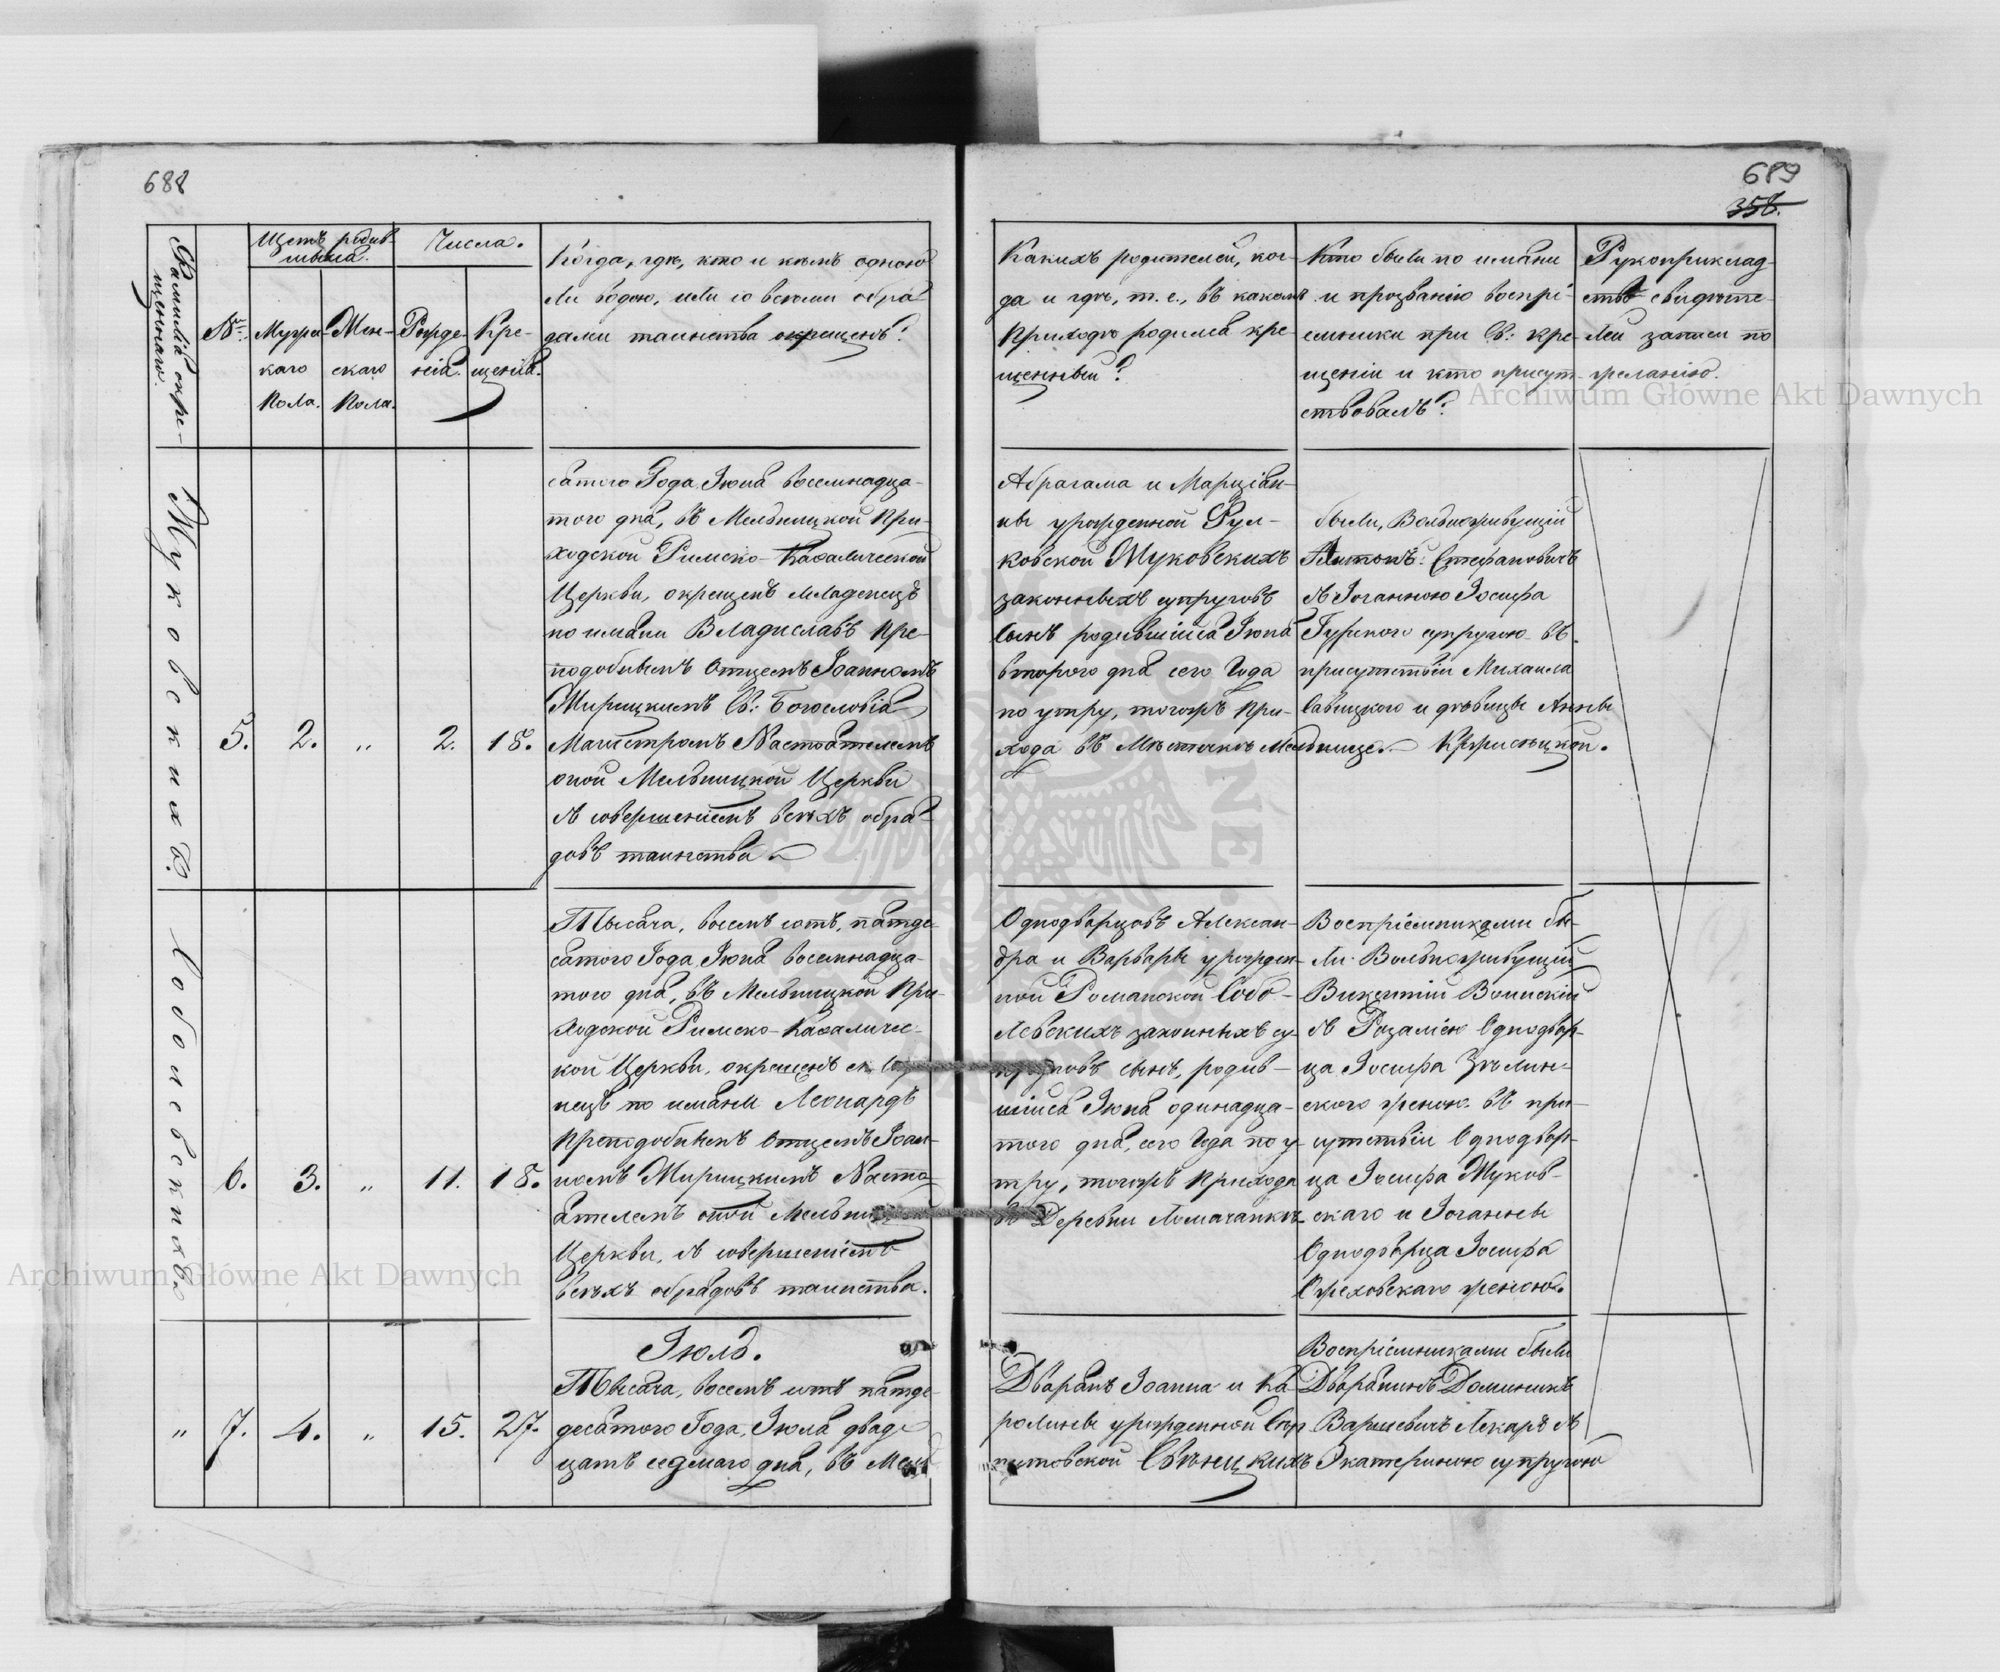 688
Фамилія окре-
щеннаго.
№
Щетъ родив-
шихся.
Мужес-
каго
Пола.
Жен-
скаго
Пола.
Числа.
Рожде-
нія.
Кре-
щенія.
Когда, гдѣ, кто и кѣмъ одною
ли водою, или со всеми обря-
дами таинства окрещенъ?
Жуковскихъ.
5.
2.
"
2.
18.
сятого Года, Іюня восемнадца-
того дня, въ Мельницкой При-
ходской Римско-Каѳалической
Церкви, окрещенъ младенецъ
по имяни Владиславъ Пре-
подобнымъ Отцемъ Іоанномъ
Мирицкимъ Св: Богословія
Магистромъ Настоятелемъ
оной Мельницкой Церкви
съ совершеніемъ всѣхъ обря-
довъ таинства.
Соболевскихъ.
6.
3.
"
11.
18.
Тысяча, восемъ сотъ, пятде-
сятого Года, Іюня восемнадца-
того дня, въ Мельницкой При-
ходской Римско-Каѳаличес-
кой Церкви, окрещенъ
нецъ по имяни Леонардъ
Преподобнымъ Отцемъ Іоан-
номъ Мирицкимъ Насто-
ятелемъ оной Мельницкой
Церкви, съ совершеніемъ
всѣхъ обрядовъ таинства.
Іюль.
"
7.
4.
"
15.
27.
Тысяча, восемъ сотъ пятде-
десятого Года, Іюля двад-
цать седмаго дня, въ Мель
689
358.
Какихъ родителей, ког-
да и гдѣ, т. е., въ какомъ
Приходѣ родился кре-
щенный?
Кто были по имяни
и прозванію воспрі-
емники при Св: кре-
щеніи и кто присут-
ствовалъ?
Рукоприклад-
ство свидѣте-
лей записи по
желанію.
Абрагама и Марціан-
ны урожденной Рут-
ковской Жуковскихъ
законныхъ супруговъ
Сынъ родившійся Іюня
второго дня сего Года
по утру, тогожъ При-
хода въ Мѣстечкѣ Мельнице.
были, Вольноживущій
Антонъ Стефановичъ
съ Іоганною Іосифа
Гурского супругою въ
присутствіи Михаила
Савицкого и дѣвицы Анны
Кржисицкой.
Однодворцовъ Алексан-
дра и Варвары урожден-
ной Романской Собо-
левскихъ законныхъ су-
пруговъ сынъ, родив-
шійся Іюня одинадца-
того дня, сего Года по у-
тру, тогожъ Прихода
въ Деревни
Воспріемниками бы-
ли Вольноживущій
Викентій Воинскій
съ Розаліею Однодвор-
ца Іосифа Зѣлин-
ского женою въ при-
сутствіи Однодвор-
ца Іосифа Жуков-
скаго и Іоганны
Однодворца Іосифа
Ожеховскаго женою.
Дворянъ Іоанна и Ка-
ролины урожденной
Свѣнцкихъ
Воспріемниками были
Дворянинъ Доминикъ
Варшевичъ Лекарь съ
Екатериною супругою
Archiwum Główne Akt Dawnych
Archiwum Główne Akt Dawnych